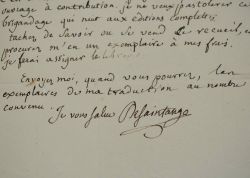 ouvrage à contribution. je ne veux pas tolerer ce
brigandage qui nuit aux éditions complètes
tachez de savoir ou se vend le recueil, et
procurez m'en un exemplaire à mes frais.
je ferai assigner le libraire
Envoyez moi, quand vous pourrez, les
exemplaires de ma traduction au nombre
convenu. Je vous salue Desaintange